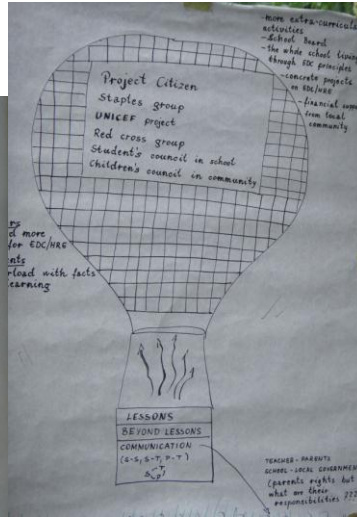 -more extra-curricula
activities
- School Board
- the whole school living
through EDC principles
- concrete projects
on EDC/HRE
- financial
from local
community
Project Citizen
Staples group
UNICEF project
Red cross group
Student's council in school
Children's council in community
rs
d more
for EDC/HRE
nts
rload with facts
earning
LESSONS
BEYOND LESSONS
COMMUNICATION
(S-S, S-T, P-T)
TEACHER - PARENTS
SCHOOL - LOCAL GOVERNMENT
(parents rights but
what are their
responsibilities ???